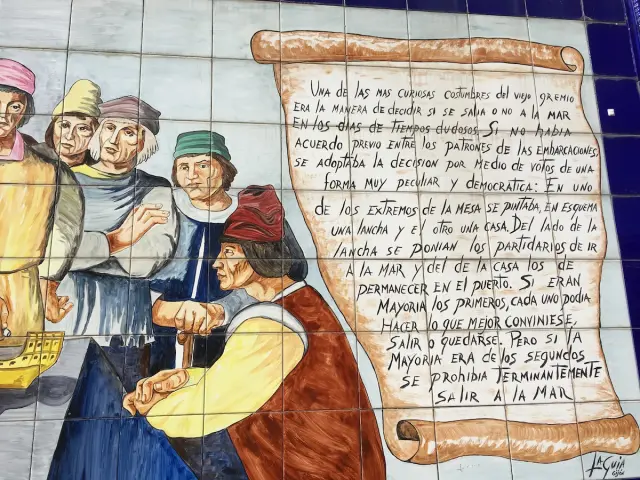 UNA DE LAS MAS CURIOSAS COSTUMBRES DEL VIEJO GREMIO
ERA LA MANERA DE DECIDIR SI SE SALIA O NO A LA MAR
EN LOS DIAS DE TIEMPOS DUDOSOS. SI NO HABIA
ACUERDO PREVIO ENTRE LOS PATRONES DE LAS EMBARCACIONES,
SE ADOPTABA LA DECISION POR MEDIO DE VOTOS DE UNA
FORMA MUY PECULIAR Y DEMOCRATICA: EN UNO
DE LOS EXTREMOS DE LA MESA SE PINTABA, EN ESQUEMA
UNA LANCHA Y EL OTRO UNA CASA. DEL LADO DE LA
LANCHA SE PONIAN LOS PARTIDARIOS DE IR
A LA MAR Y DEL DE LA CASA LOS DE
PERMANECER EN EL PUERTO. SI ERAN
MAYORIA LOS PRIMEROS, CADA UNO PODIA
HACER LO QUE MEJOR CONVINIESE,
SALIR O QUEDARSE. PERO SI LA
MAYORIA ERA DE LOS SEGUNDOS
SE PROHIBIA TERMINANTEMENTE
SALIR A LA MAR
LA GUIA
GIJON